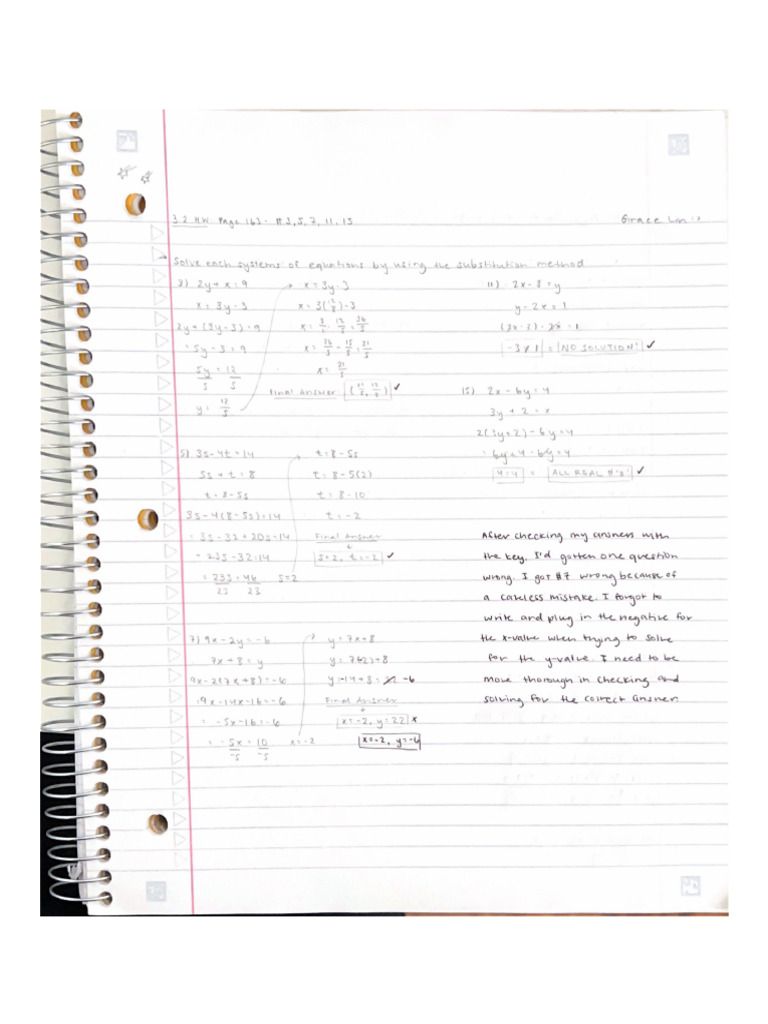 3.2 HW Page 163- # 3, 5, 7, 11, 15
Grace
Solve each systems of equations by using the substitution method
3) 2y + x = 9
x = 3y - 3
2y + (3y - 3) = 9
= 5y - 3 = 9
5y = 12
5 5
y = 12/5
x = 3y - 3
x = 3(12/5) - 3
x = 3/1 · 12/5 = 36/5
x = 36/5 - 15/5 = 21/5
x = 21/5
Final Answer (21/5, 12/5) ✓
5) 3s - 4t = 14
5s + t = 8
t = 8 - 5s
3s - 4(8 - 5s) = 14
= 3s - 32 + 20s = 14
= 23s - 32 = 14
= 23s = 46 s = 2
23 23
t = 8 - 5s
t = 8 - 5(2)
t = 8 - 10
t = -2
Final Answer
s = 2, t = -2 ✓
7) 9x - 2y = -6
7x + 8 = y
9x - 2(7x + 8) = -6
9x - 14x - 16 = -6
= -5x - 16 = -6
= -5x = 10 x = -2
-5 -5
y = 7x + 8
y = 7(2) + 8
y = -14 + 8 = 22 -6
Final Answer
x = -2, y = 22 x
x = -2, y = -6
11) 2x - 8 = y
y - 2x = 1
-3 ≠ 1 = NO SOLUTION! ✓
15) 2x - 6y = 4
3y + 2 = x
2(3y + 2) - 6y = 4
= 6y + 4 - 6y = 4
4 = 4 = ALL REAL #'s! ✓
After checking my answers with
the key, I'd gotten one question
wrong. I got #7 wrong because of
a careless mistake. I forgot to
write and plug in the negative for
the x-value when trying to solve
for the y-value. I need to be
more thorough in checking and
solving for the correct answer.